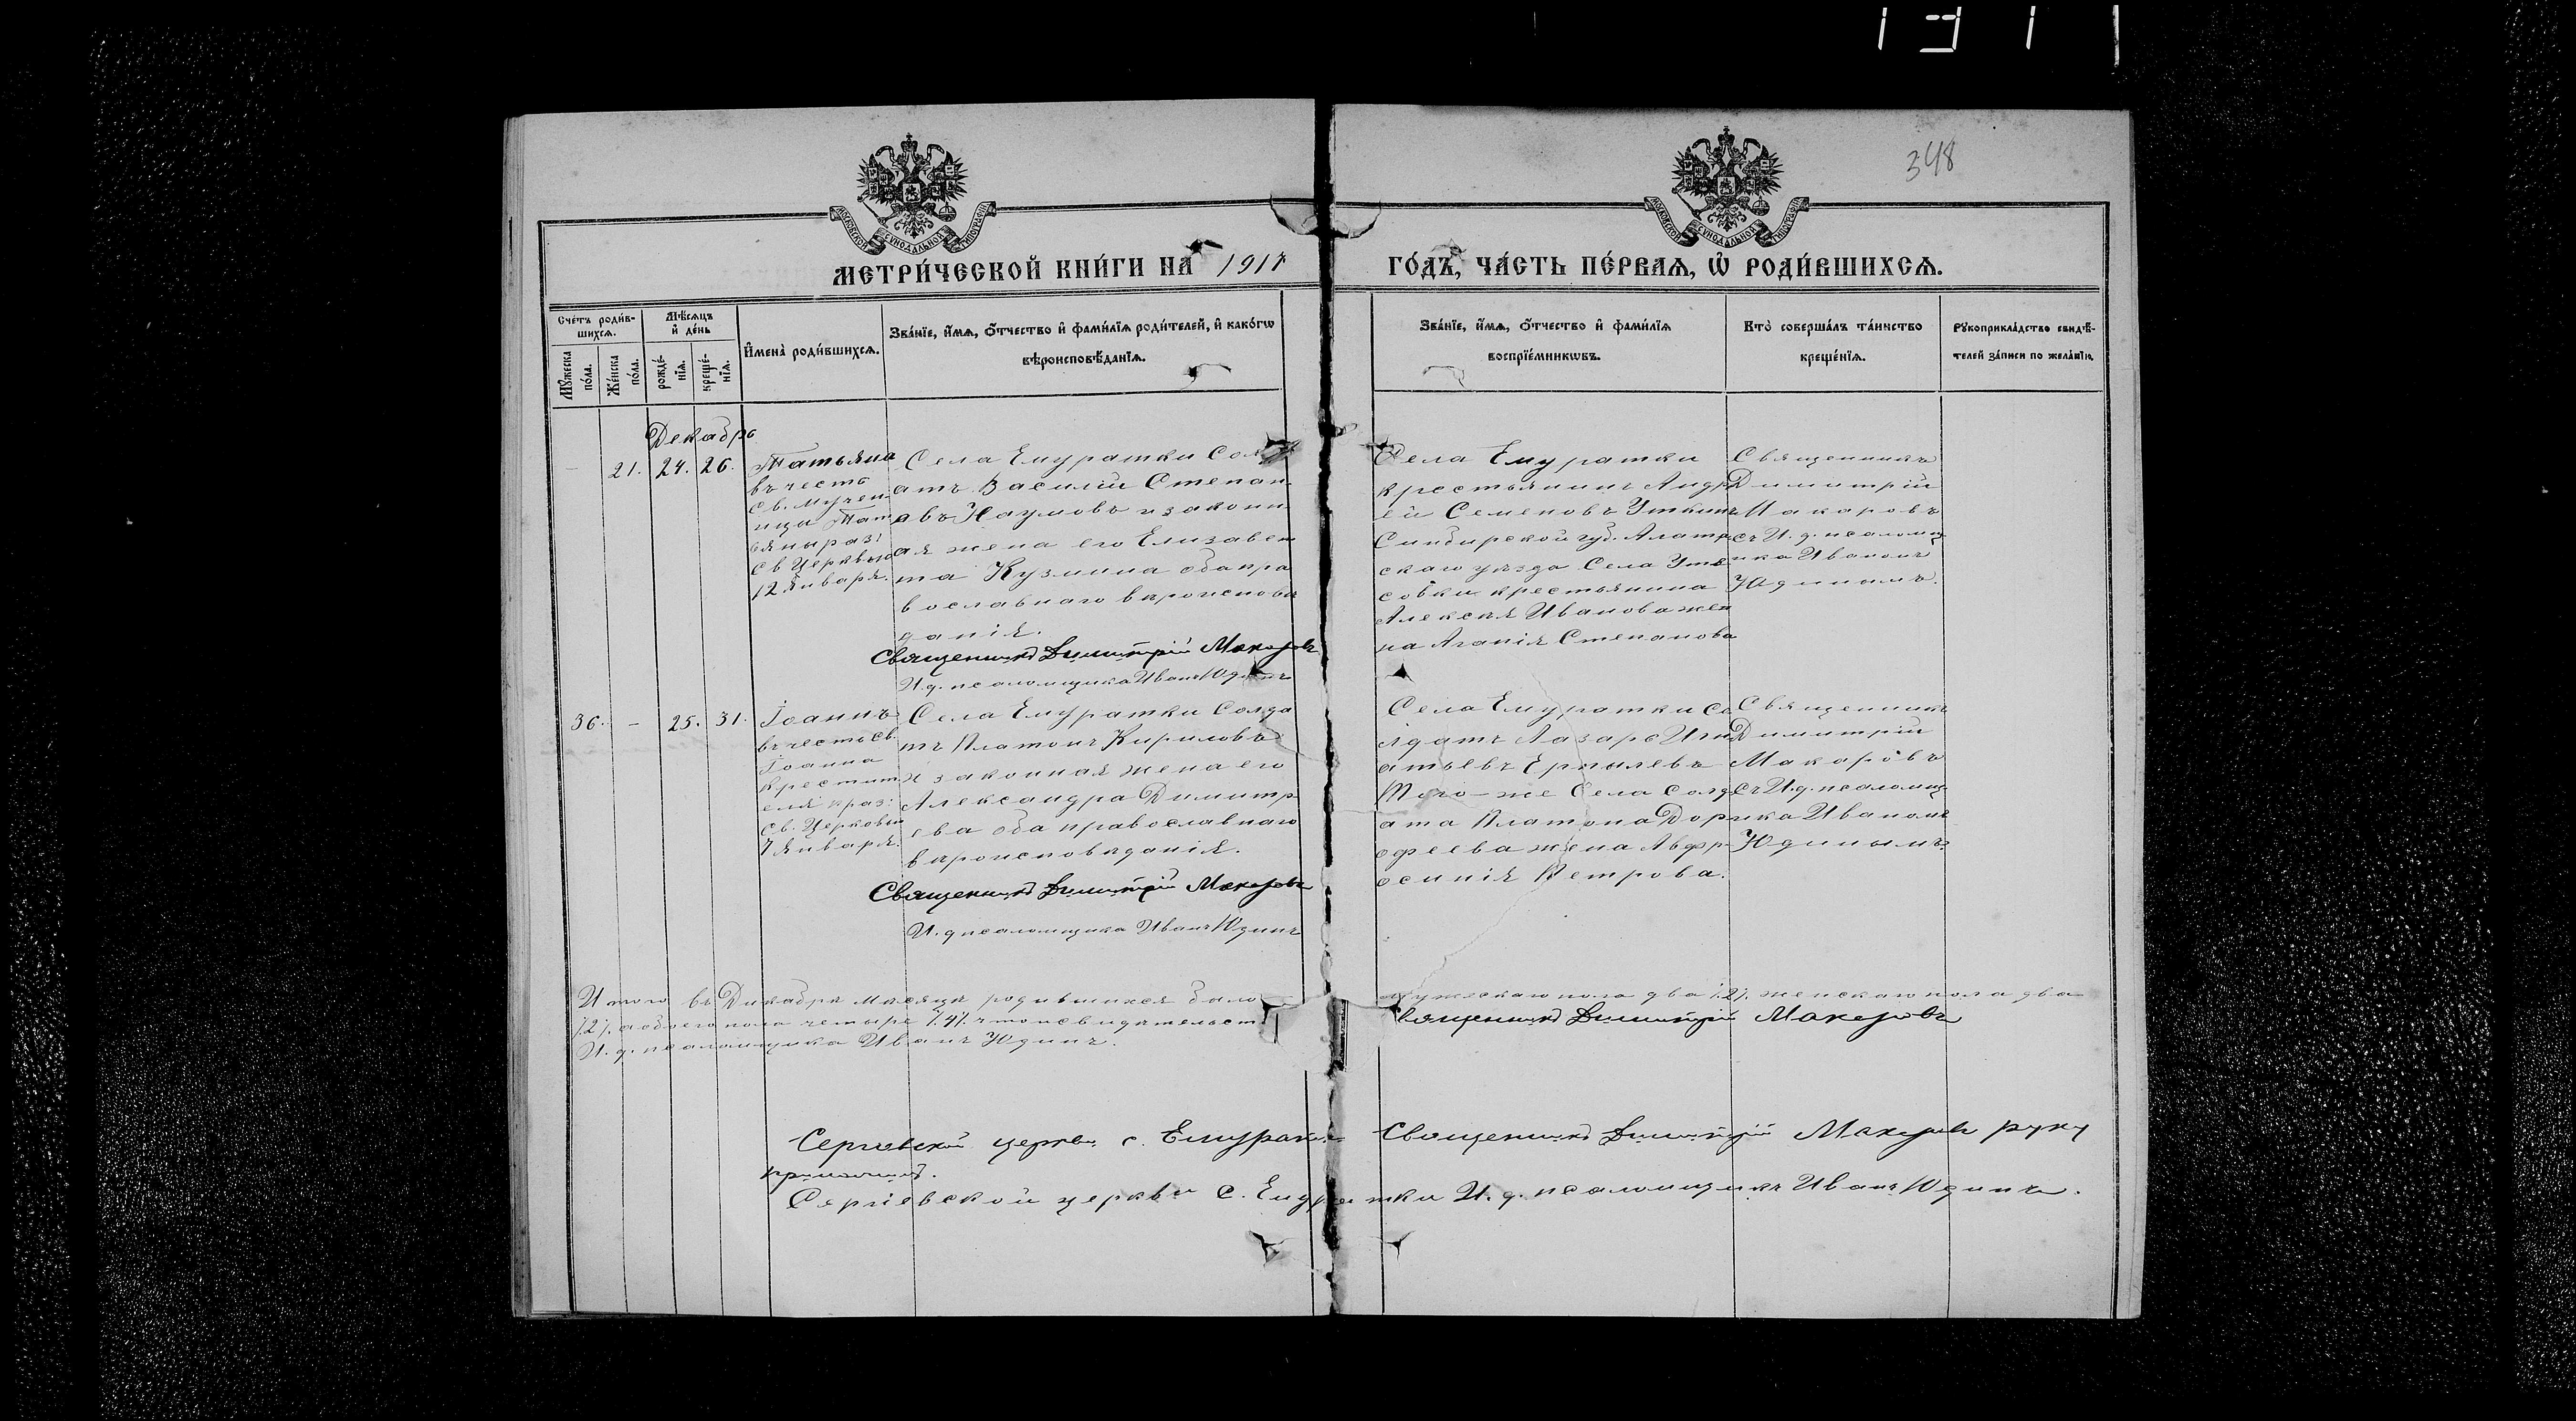 348
МОСКОВСКОЙ СУНОДАЛЬНОЙ ТИПОГРАФІИ
МОСКОВСКОЙ СУНОДАЛЬНОЙ ТИПОГРАФІИ
МЕТРИ́ЧЕСКОЙ КНИ́ГИ НА 1917 ГО́ДЪ, ЧА́СТЬ ПЕ́РВАѦ, Ѽ РОДИ́ВШИХСѦ.
Сче́тъ роди́в-
шихсѧ.
Мꙋ́жеска
по́ла.
Же́нска
по́ла.
Мѣ́сѧцъ
и҆ де́нь
рожде́-
нїѧ.
креще́-
нїѧ.
И҆мена̀ роди́вшихсѧ.
Зва́нїе, и҆́мѧ, ѻ҆́тчество и҆ фами́лїѧ роди́телей, и҆ како́гѡ
вѣроисповѣ́данїѧ.
Зва́нїе, и҆́мѧ, ѻ҆́тчество и҆ фами́лїѧ
воспрїе́мникѡвъ.
Кто̀ соверша́лъ та́инство
креще́нїѧ.
Рꙋкоприкла́дство свидѣ́-
телей за́писи по жела́нїю.
Декабрь
21. 24. 26.
Татьяна
въ честь
св. мучен-
ицы Тат
ьяны праз:
св Церковью
12 Января.
Села Емуратки Солд
атъ Василій Степан
овъ Наумовъ и законн
ая жена его Елизавет
та Кузмина оба пра
вославнаго вѣроисповѣ
данія.
Священникъ Димитрій Макаровъ
И. д. псаломщика Иванъ Юдинъ
Села Емуратки
крестьянинъ Андр
ей Семеновъ Уткинъ
Симбирской губ. Алатыр
скаго уѣзда Села
совки крестьянина
Алексѣя Иванова жен
на Агапія Степанова
Священникъ
Димитрій
Макаровъ
съ И. д. псаломщ
ика Иваномъ
Юдинымъ.
36. - 25. 31.
Іоаннъ
въ честь св.
Іоанна
Крестит
еля праз:
св. Церковью
7 Января.
Села Емуратки Солда
тъ Платонъ Кириловъ
и законная жена его
Александра Димитр
ева оба православнаго
вѣроисповѣданія.
Священникъ Димитрій Макаровъ
И. д псаломщика Иванъ Юдинъ
Села Емуратки Со
лдатъ Лазарь Игн
атьевъ Ермилевъ
Того-же Села Солд
ата Платона Дор
офеева жена Авфр
осинія Петрова.
Священникъ
Димитрій
Макаровъ
съ И. д. псаломщ
ика Иваномъ
Юдинымъ.
Итого въ Декабрѣ мѣсяцѣ родившихся было мужскаго пола два /2/. женскаго пола два
/2/. а обоего пола четыре /4/. что и свидѣтельст Священникъ Димитрій Макаровъ
И. д. псаломщика Иванъ Юдинъ.
Сергіевской церкви с. Емуратки Священникъ Димитрій Макаровъ руку
приложилъ.
Сергіевской церкви с. Емуратки И. д. псаломщикъ Иванъ Юдинъ.